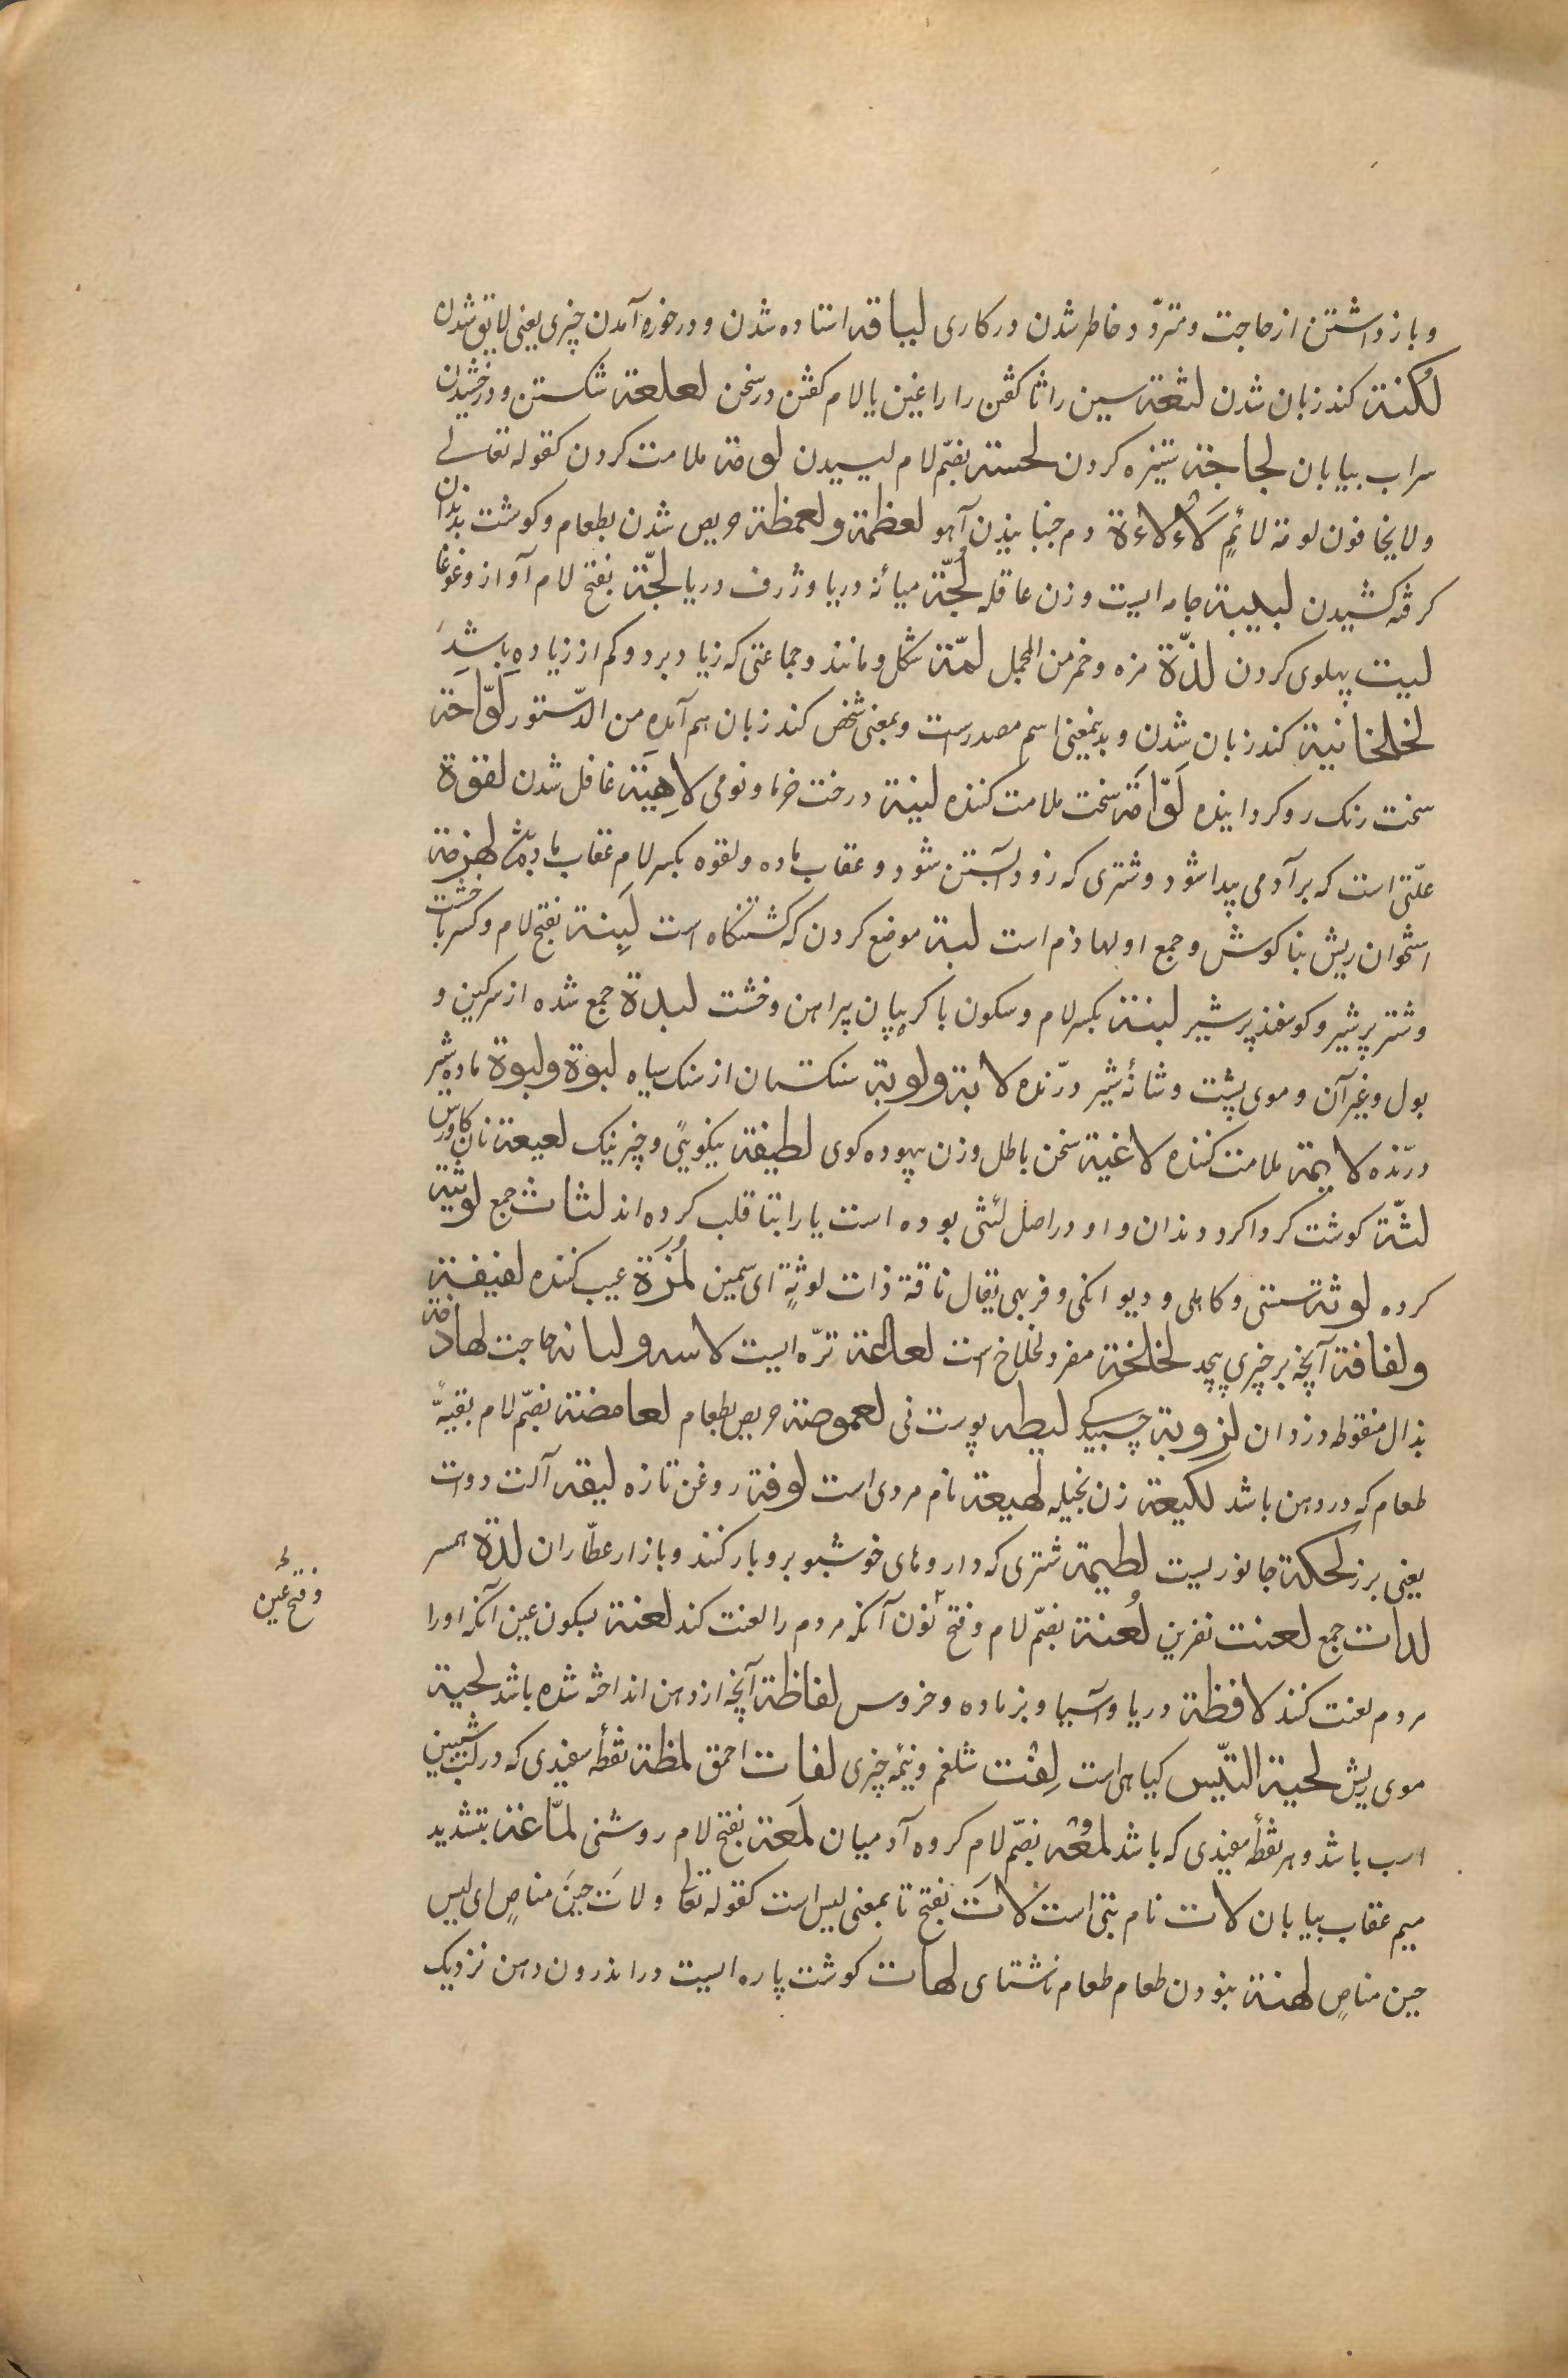 و باز داشتن از حاجت و متردّد خاطر شدن در کاری لباقه استاده شدن و در خوره آمدن چیزی یعنی لایق شدن
لُکنة کند زبان شدن لثغة سین را ثا کفتن را را غین یا لام کفتن در سخن لعلعة شکستن و درخشیدن
سراب بیابان لجاجة ستیزه کردن لحسة بضمّ لام لیسیدن لومة ملامت کردن کقوله تعالے
ولا یخافون لومة لائمٍ لَأْلاءة دم جنبانیدن آهو لعظمة ولعمظة حریص شدن بطعام و کوشت بدندان
کرفته کشیدن لبیبة جامه ایست و زن عاقله لُجّة میانهٔ دریا و ژرف دریا لجّة بفتح لام آواز و غوغا
لیت پهلوی کردن لذّة مزه و خمر من المجمل لمّة شکل و مانند و جماعتی که زیاد برد و کم از زیاده باشد
لخلخانیة کند زبان شدن و بدینمعنی اسم مصدرست و بمعنی شخص کند زبان هم آمده من الدّستور لَوّاحَة
سخت رنک رو کرداینده لَوّامَة سخت ملامت کننده لینة درخت خرما و نومی لاهِیَة غافل شدن لقوة
علّتی است که بر آدمی پیدا شود و شتری که زود آبستن شود و عقاب ماده و لقوه بکسر لام عقاب ماده لهزمة
استخوان ریش بناکوش و جمع او لهاذم است لبة موضع کردن که کشتنکاه است لَبِنة بفتح لام و کسر با خشت
و شتر پر شیر و کوسفند پر شیر لبنة بکسر لام و سکون با کریبان پیراهن و خشت لبدة جمع شده از سرکین و
بول و غیر آن و موی پشت و شانهٔ شیر درّنده لابة ولوبة سنکستان از سنک سیاه لبوة ولبوة ماده شیر
درّنده لایمة ملامت کننده لاغیة سخن باطل و زن بیهوده کوی لطیفة نیکویی و چیز نیک لعیعة نان کاورس
لثّة کوشت کرداکرد دندان و او در اصل لثی بوده است یا را بتا قلب کرده اند لثاث جمع لوثیة
کرده لوثة سستی و کاهلی و دیوانکی و فربهی یقال ناقة ذات لوثةٍ ای سمین لُمَزَة عیب کننده لفیفة
ولفافة آنچه بر چیزی پیچد لخلخة مفرد لخلاخ است لعالعة ترّه ایست لاسه ولبانه حاجت لهاذمة
بذال منقوطه دزدان لزوبة چسبیدکے لیطه پوست نی لعموصة حریص بطعام لعامضة بضمّ لام بقیهٔ
طعام که در دهن باشد لکیعة زن بخیله لهیعة نام مردی است لوفة روغن تازه لیقه آلت دوات
یعنی برز لحکة جانوریست لطیمة شتری که داروهای خوشبو برو بار کنند و بازار عطّاران لدة همسر
لدات جمع لعنت نفرین لُعنة بضمّ لام و فتح نون آنکه مردم را لعنت کند لعنة بسکون عین آنکه او را
و فتح عین
مردم لعنت کنند لافظة دریا و آسیا و بز ماده و خروس لفاظة آنچه از دهن انداخته شده باشد لحیة
موی ریش لحیة التّیس کیاهی است لِفت شلغم و نیمه چیزی لفات احمق لمظة نقطهٔ سفیدی که در لب شیبین
اسب باشد و هر نقطهٔ سفیدی که باشد لمعة بضمّ لام کروه آدمیان لَمعة بفتح لام روشنی لمّاعة بتشدید
میم عقاب بیابان لات نام بتی است لاتَ بفتح تا بمعنی لیس است کقوله تعالی ولاتَ حینَ مناصٍ ای لیس
حین مناصٍ لهنة نبودن طعام طعام ناشتای لهات کوشت پاره ایست در اندرون دهن نزدیک